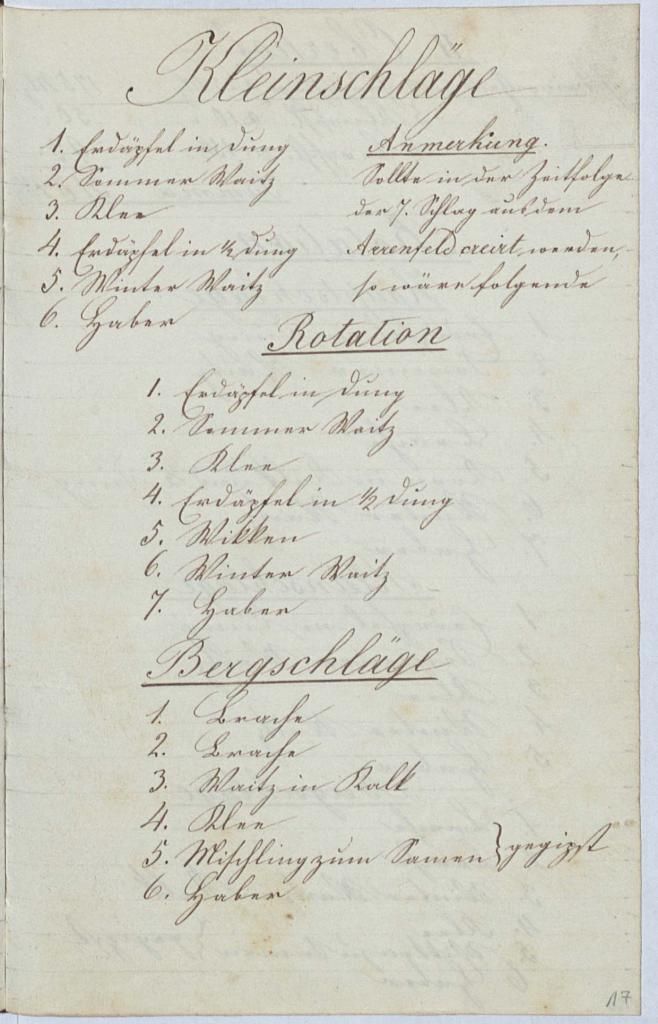 Kleinschläge
1. Erdäpfel in Dung
2. Sommer Waitz
3. Klee
4. Erdäpfel in ½ Dung
5. Winter Waitz
6. Haber
Anmerkung.
Sollte in der Zeitfolge
der 7. Schlag aus dem
Arrenfeld creirt werden,
so wäre folgende
Rotation
1. Erdäpfel in Dung
2. Sommer Waitz
3. Klee
4. Erdäpfel in ½ Dung
5. Wikken
6. Winter Waitz
7. Haber
Bergschläge
1. Brache
2. Brache
3. Waitz in Kalk
4. Klee
5. Mischling zum Samen } gegipst
6. Haber
17